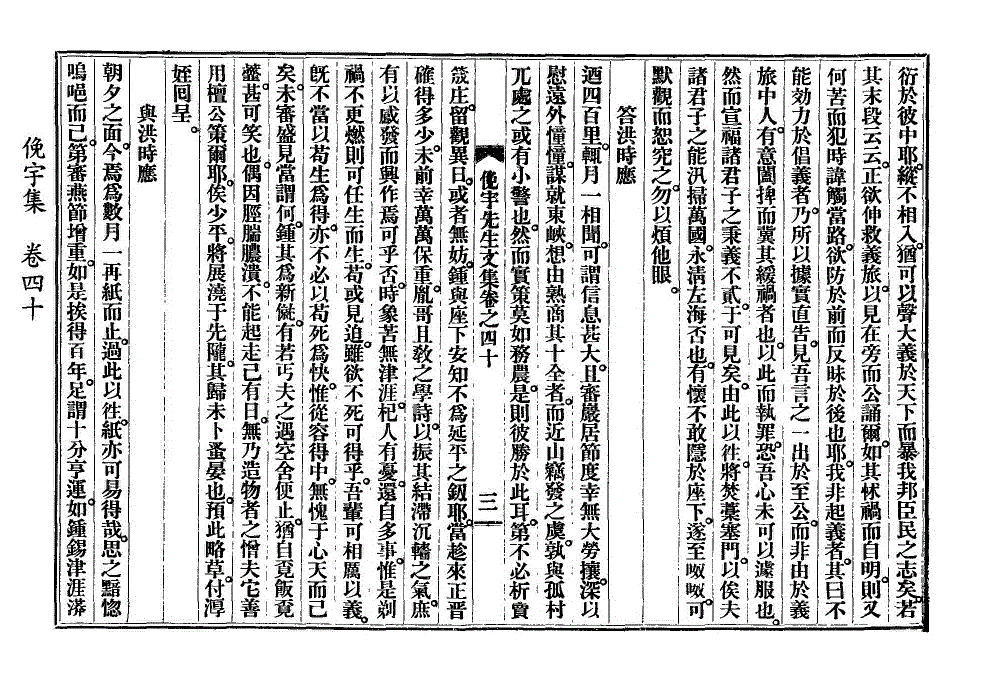 衍於彼中耶。縱不相入。猶可以聲大義於天下而暴我邦臣民之志矣。若
其末段云云。正欲伸救義旅。以見在旁而公誦爾。如其怵禍而自明。則又
何苦而犯時諱觸當路。欲防於前而反昧於後也耶。我非起義者。其曰不
能効力於倡義者。乃所以據實直告。見吾言之一出於至公。而非由於義
旅中人。有意闔捭而冀其緩禍者也。以此而執罪。恐吾心未可以遽服也。
然而宣福諸君子之秉義不貳。于可見矣。由此以徃。將焚藁塞門。以俟夫
諸君子之能汎掃萬國。永淸左海否也。有懷不敢隱於座下。遂至呶呶。可
默觀而恕究之。勿以煩他眼。
答洪時應
迺四百里。輒月一相聞。可謂信息甚大。且審嚴居節度幸無大勞攘。深以
慰遠外憧憧。謀就東峽。想由熟商其十全者。而近山竊發之虞。孰與孤村
兀處之或有小警也。然而實策莫如務農。是則彼勝於此耳。第不必析賣
俛宇先生文集卷之四十
三
箴庄。留觀異日。或者無妨。鍾與座下安知不爲延平之釼耶。當趁來正晋
確得多少。未前幸萬萬保重。胤哥且敎之學詩。以振其結滯沉轖之氣。庶
有以感發而興作焉。可乎否。時象苦無津涯。杞人有憂。還自多事。惟是剃
禍不更燃則可任生而生。苟或見迫。雖欲不死可得乎。吾輩可相厲以義。
旣不當以苟生爲得。亦不必以苟死爲快。惟從容得中。無愧于心天而已
矣。未審盛見當謂何。鍾其爲新僦。有若丐夫之遇空舍便止。猶自覓飯覓
虀。甚可笑也。偶因脛腨膿潰。不能起走已有日。無乃造物者之憎夫它善
用檀公策爾耶。俟少平。將展澆于先隴。其歸未卜蚤晏也。預此略草。付渟
姪囘呈。
與洪時應
朝夕之面。今焉爲數月一再紙而止。過此以徃。紙亦可易得哉。思之黯惚
嗚唈而已。第審燕節增重。如是挨得百年。足謂十分亨運。如鍾錫津涯潻
俛宇集 卷四十